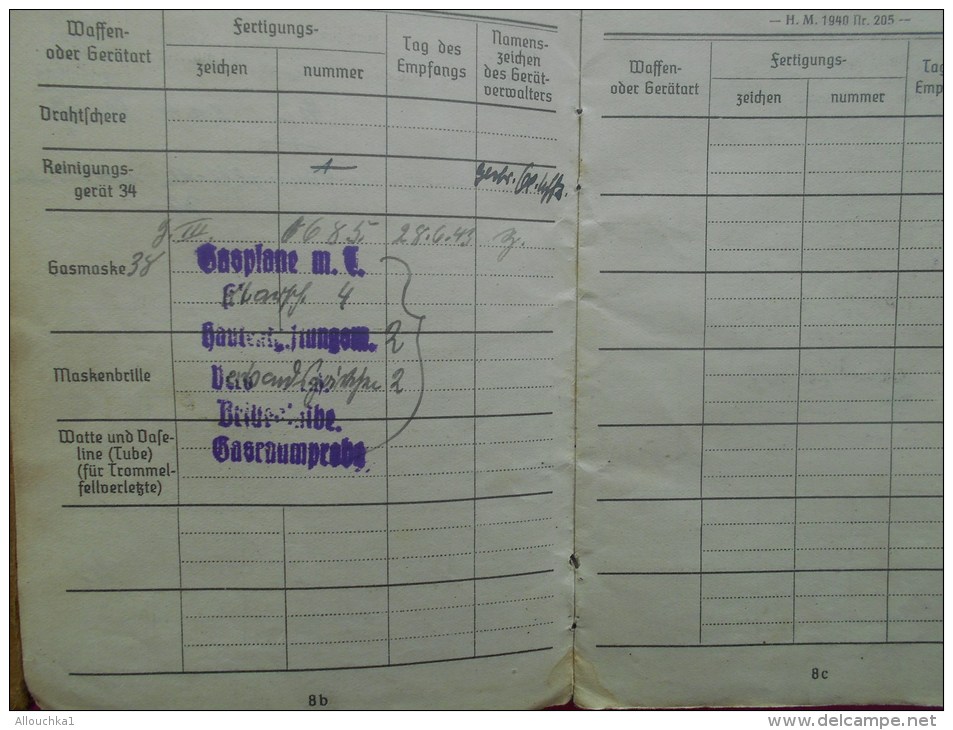 Waffen-
oder Gerätart
Fertigungs-
zeichen
nummer
Tag des
Empfangs
Namens-
zeichen
des Gerät-
verwalters
Drahtschere
Reinigungs-
gerät 34
1
Gasmaske 38
685. 28.6.43
Gasplane m. T.
4
2
2
Gasraumprobe
Maskenbrille
Watte und Vase-
line (Tube)
(für Trommel-
fellverletzte)
8b
— H. M. 1940 Nr. 205 —
Waffen-
oder Gerätart
Fertigungs-
zeichen
nummer
Tag
Emp
8c
Allouchka1
www.delcampe.net